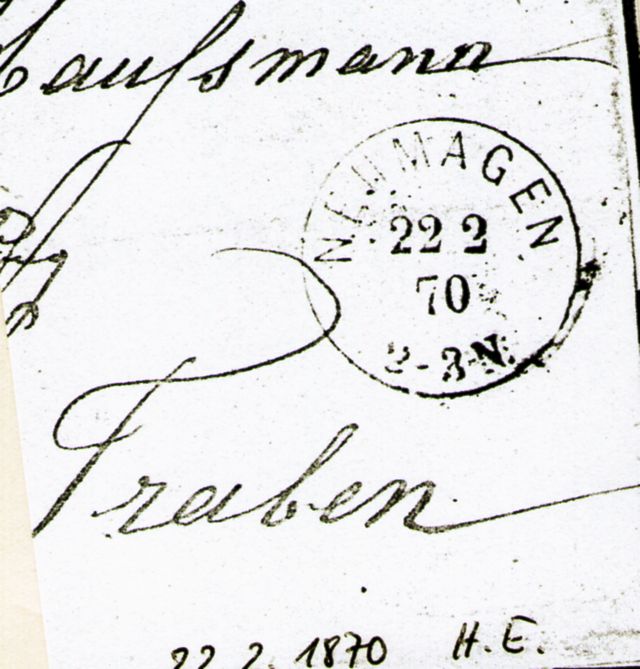 Kaufsmann
NEUMAGEN
22 2
70
2-3 N.
Traben
22 2. 1870 H. E.